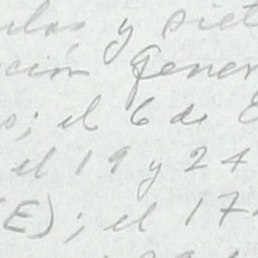 y siet
ción gener
; el 6 de
el 19 y 24
(E); el 17